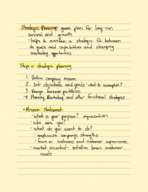 Strategic Planning: game plan for long-run
survival and growth
- helps to maintain a strategic fit between
its goals and capabilities and changing
marketing opportunities
Steps in strategic planning
1. Define company mission
2. Set objectives and goals
3. Design business portfolio
4. Planning Marketing and other functional strategies
- Mission Statement
- what is your purpose?
- who are you?
- what do you want to do?
- emphasize company strengths
- market oriented - satisfying basic customer
needs